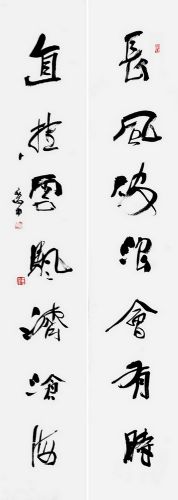 長風破浪會有時
直挂雲颿濟滄海